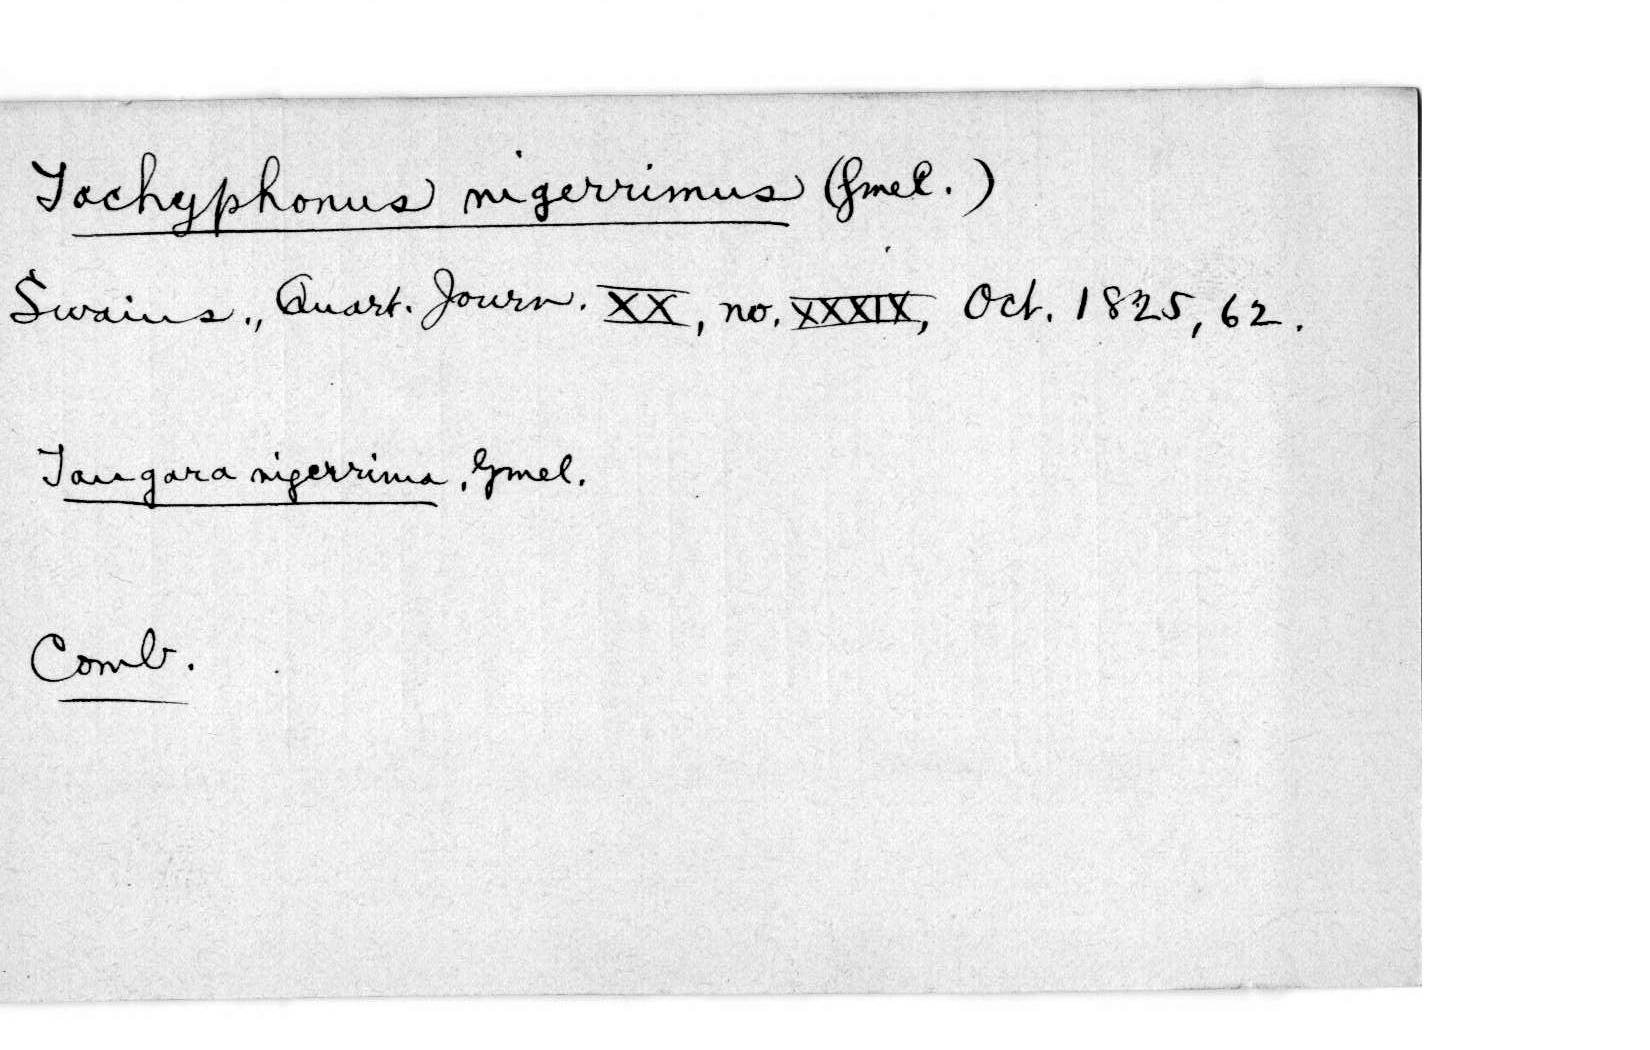 Tachyphonus nigerrimus (Gmel.)
Swains., Quart. Journ. XX, no. XXXIX, Oct. 1825, 62.
Tangara nigerrima, Gmel.
Comb.